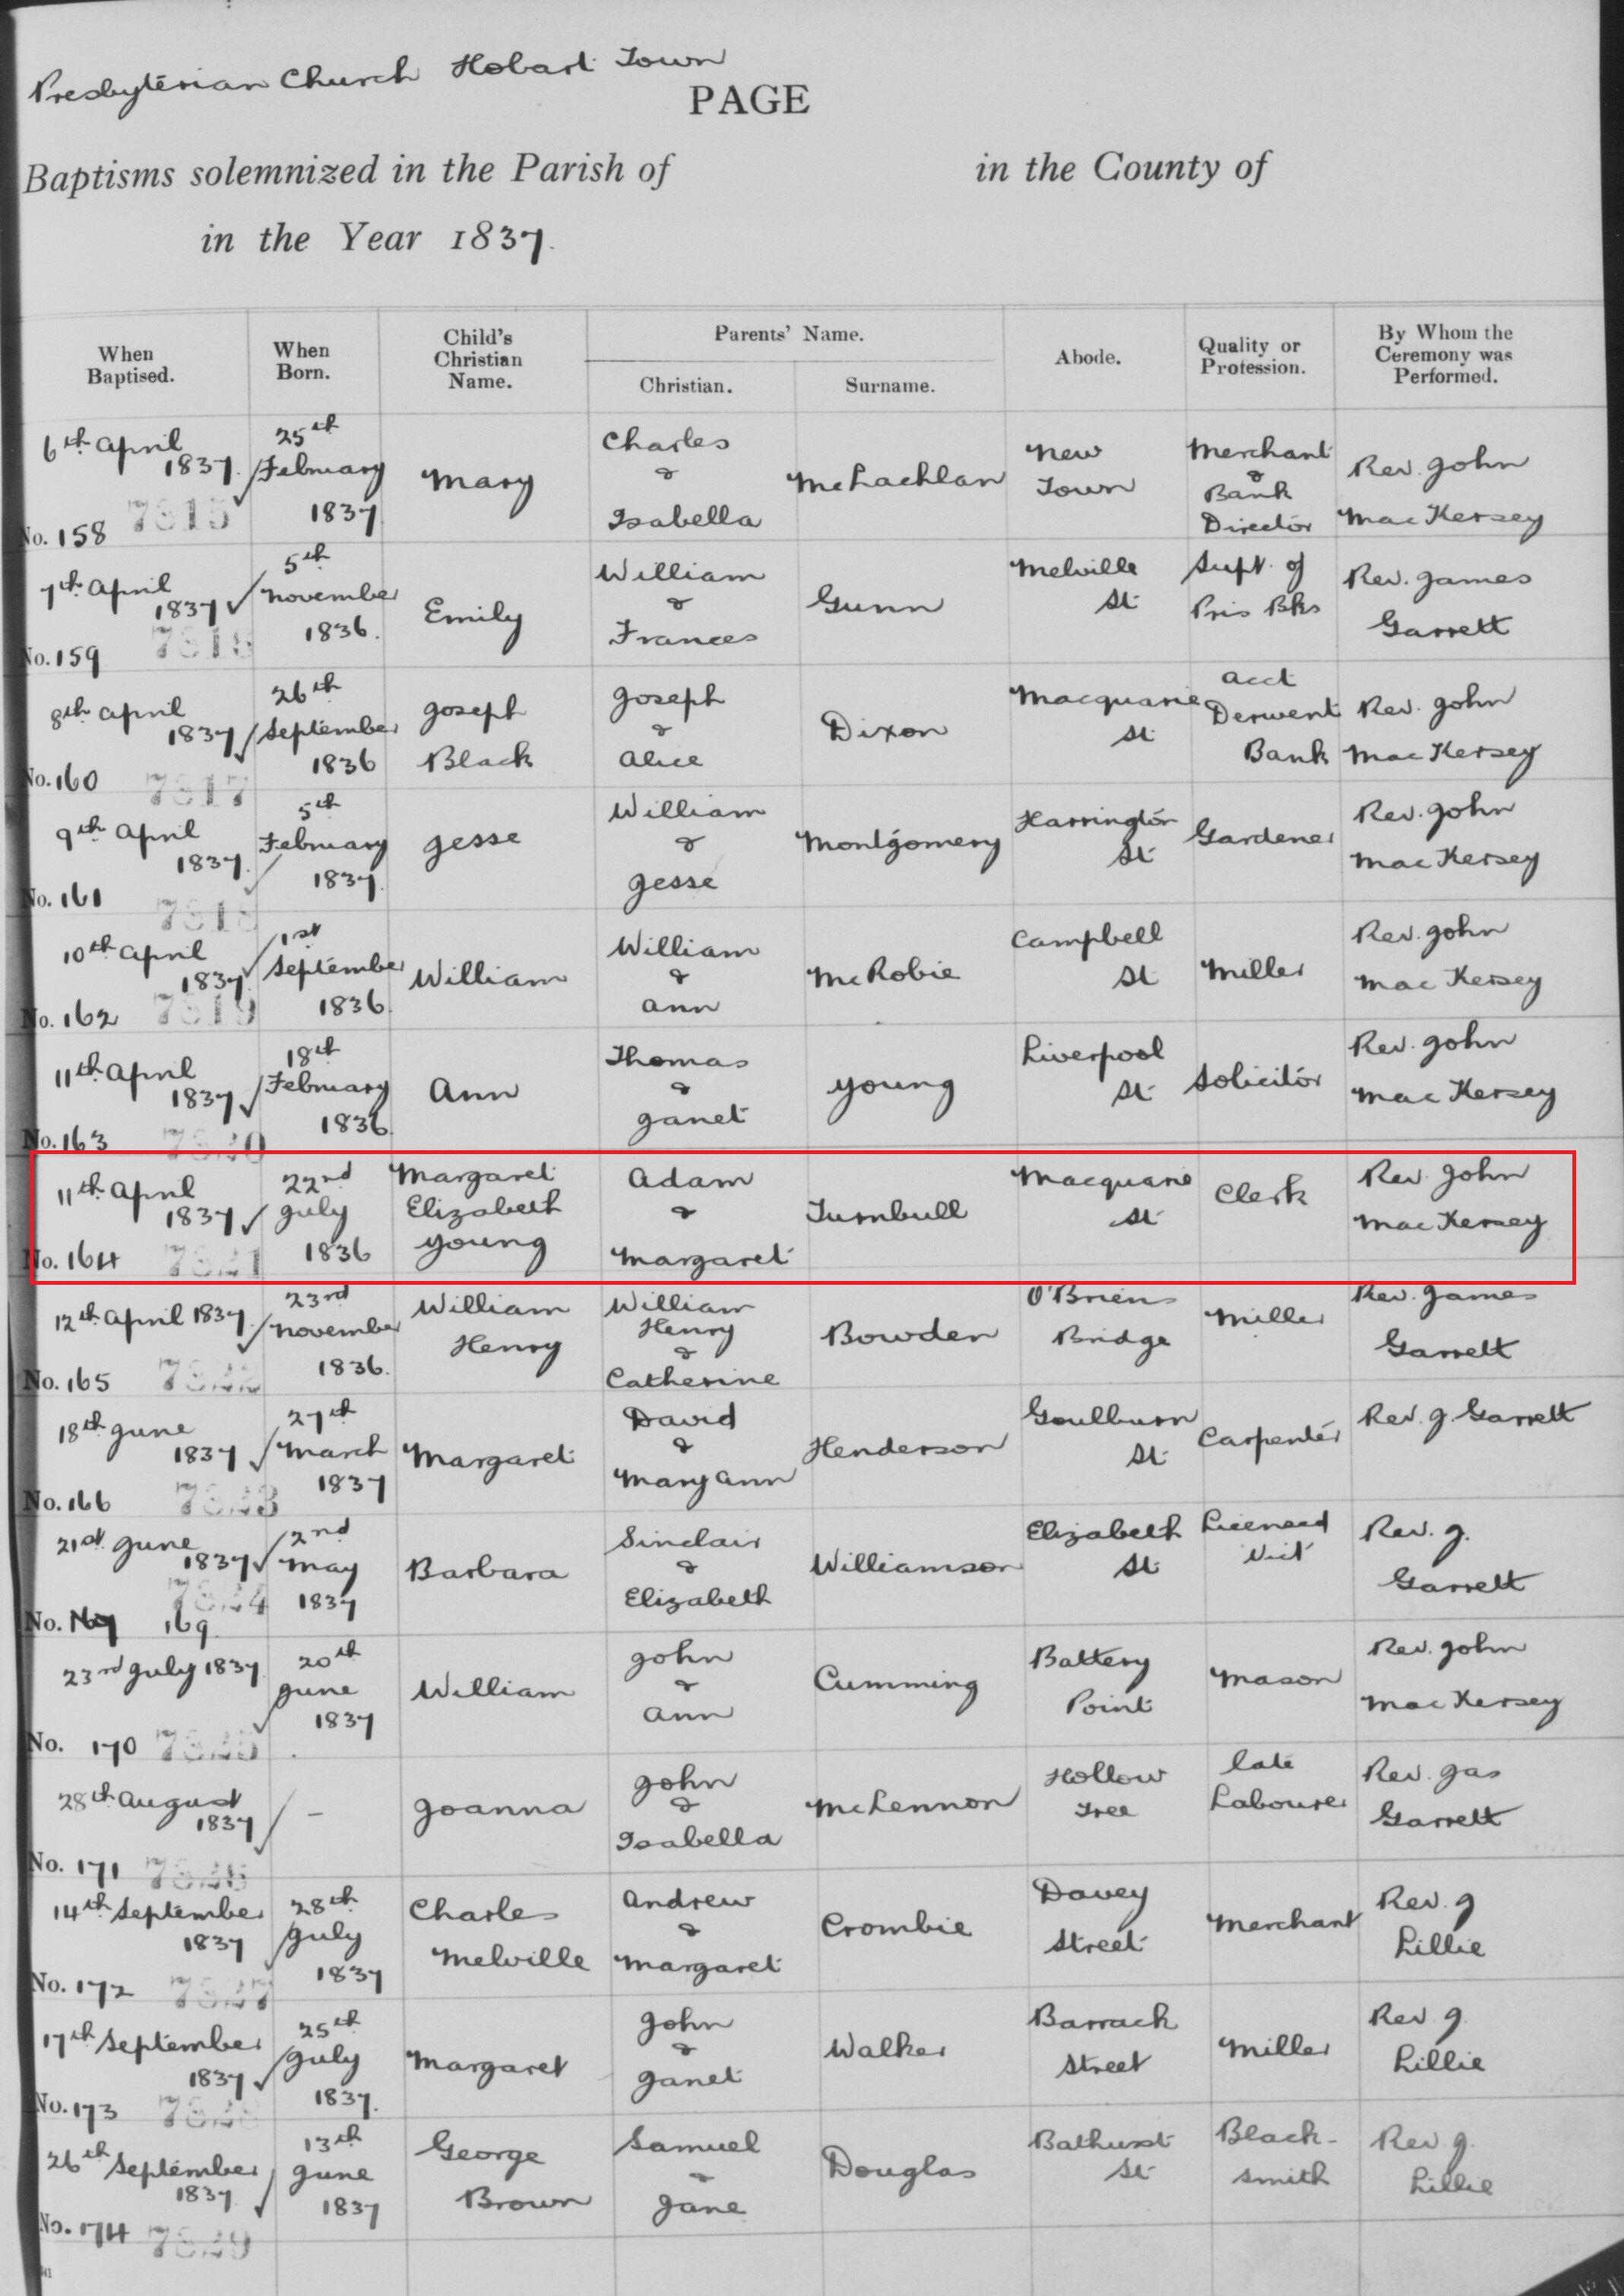 Presbyterian Church Hobart Town
PAGE
Baptisms solemnized in the Parish of in the County of
in the Year 1837.
When Baptised. When Born. Child's Christian Name. Parents' Name. Christian. Surname. Abode. Quality or Profession. By Whom the Ceremony was Performed.
6th April 1837. No. 158 7815 25th February 1837 Mary Charles & Isabella McLachlan New Town Merchant & Bank Director Rev. John Mac Kersey
7th April 1837 No. 159 7816 5th November 1836. Emily William & Frances Gunn Melville St Supt. of Pris Bks Rev. James Garrett
8th April 1837 No. 160 7817 26th September 1836 Joseph Black Joseph & Alice Dixon Macquarie St Acct Derwent Bank Rev. John Mac Kersey
9th April 1837. No. 161 7818 5th February 1837. Jesse William & Jesse Montgomery Harrington St Gardener Rev. John Mac Kersey
10th April 1837. No. 162 7819 1st September 1836. William William & Ann McRobie Campbell St Miller Rev. John Mac Kersey
11th April 1837 No. 163 7820 18th February 1836. Ann Thomas & Janet Young Liverpool St Solicitor Rev. John Mac Kersey
11th April 1837 No. 164 7821 22nd July 1836 Margaret Elizabeth Young Adam & Margaret Turnbull Macquarie St Clerk Rev. John Mac Kersey
12th April 1837. No. 165 7822 23rd November 1836. William Henry William Henry & Catherine Bowden O'Briens Bridge Miller Rev. James Garrett
18th June 1837 No. 166 7823 27th March 1837 Margaret David & Mary Ann Henderson Goulburn St Carpenter Rev. J. Garrett
21st June 1837 No. 169. 7824 2nd May 1837 Barbara Sinclair & Elizabeth Williamson Elizabeth St Licensed Vict Rev. J. Garrett
23rd July 1837. No. 170 7825 20th June 1837 William John & Ann Cumming Battery Point Mason Rev. John Mac Kersey
28th August 1837 No. 171 7826 - Joanna John & Isabella McLennon Hollow Tree late Labourer Rev. Jas Garrett
14th September 1837 No. 172 7827 28th July 1837 Charles Melville Andrew & Margaret Crombie Davey Street Merchant Rev. J Lillie
17th September 1837 No. 173 7828 25th July 1837. Margaret John & Janet Walker Barrack Street Miller Rev. J. Lillie
26th September 1837. No. 174 7829 13th June 1837 George Brown Samuel & Jane Douglas Bathurst St Black-smith Rev. J. Lillie